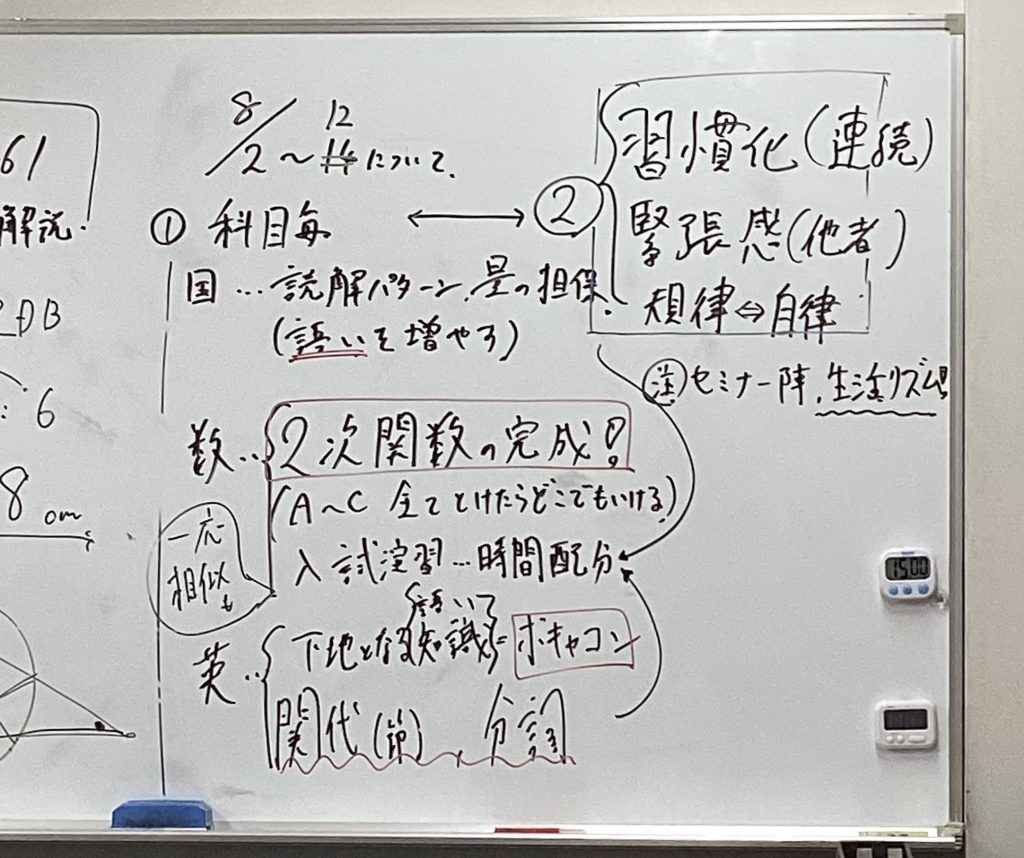 61
解説.
DB
6
8 cm
8/2〜12について.
① 科目毎
国…読解パターン、量の担保.
(語いを増やす)
数… 2次関数の完成!
(A〜C 全てとけたらどこでもいける)
一応
相似も
入試演習…時間配分
語い
英… 下地となる知識=ボキャコン
関代(節)、分詞
② 習慣化(連続)
緊張感(他者)
規律⇔自律
注 セミナー陣、生活リズム!!
15:00